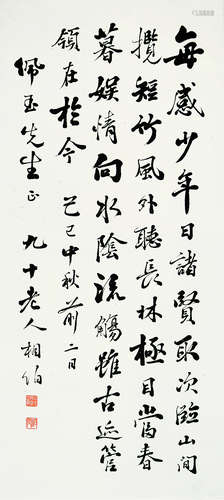 每感少年日諸賢取次臨山間
攬短竹風外聽長林極目當春
暮娛情向水陰流觴雖古迹管
領在於今 己巳中秋前二日
佩玉先生正 九十老人相伯